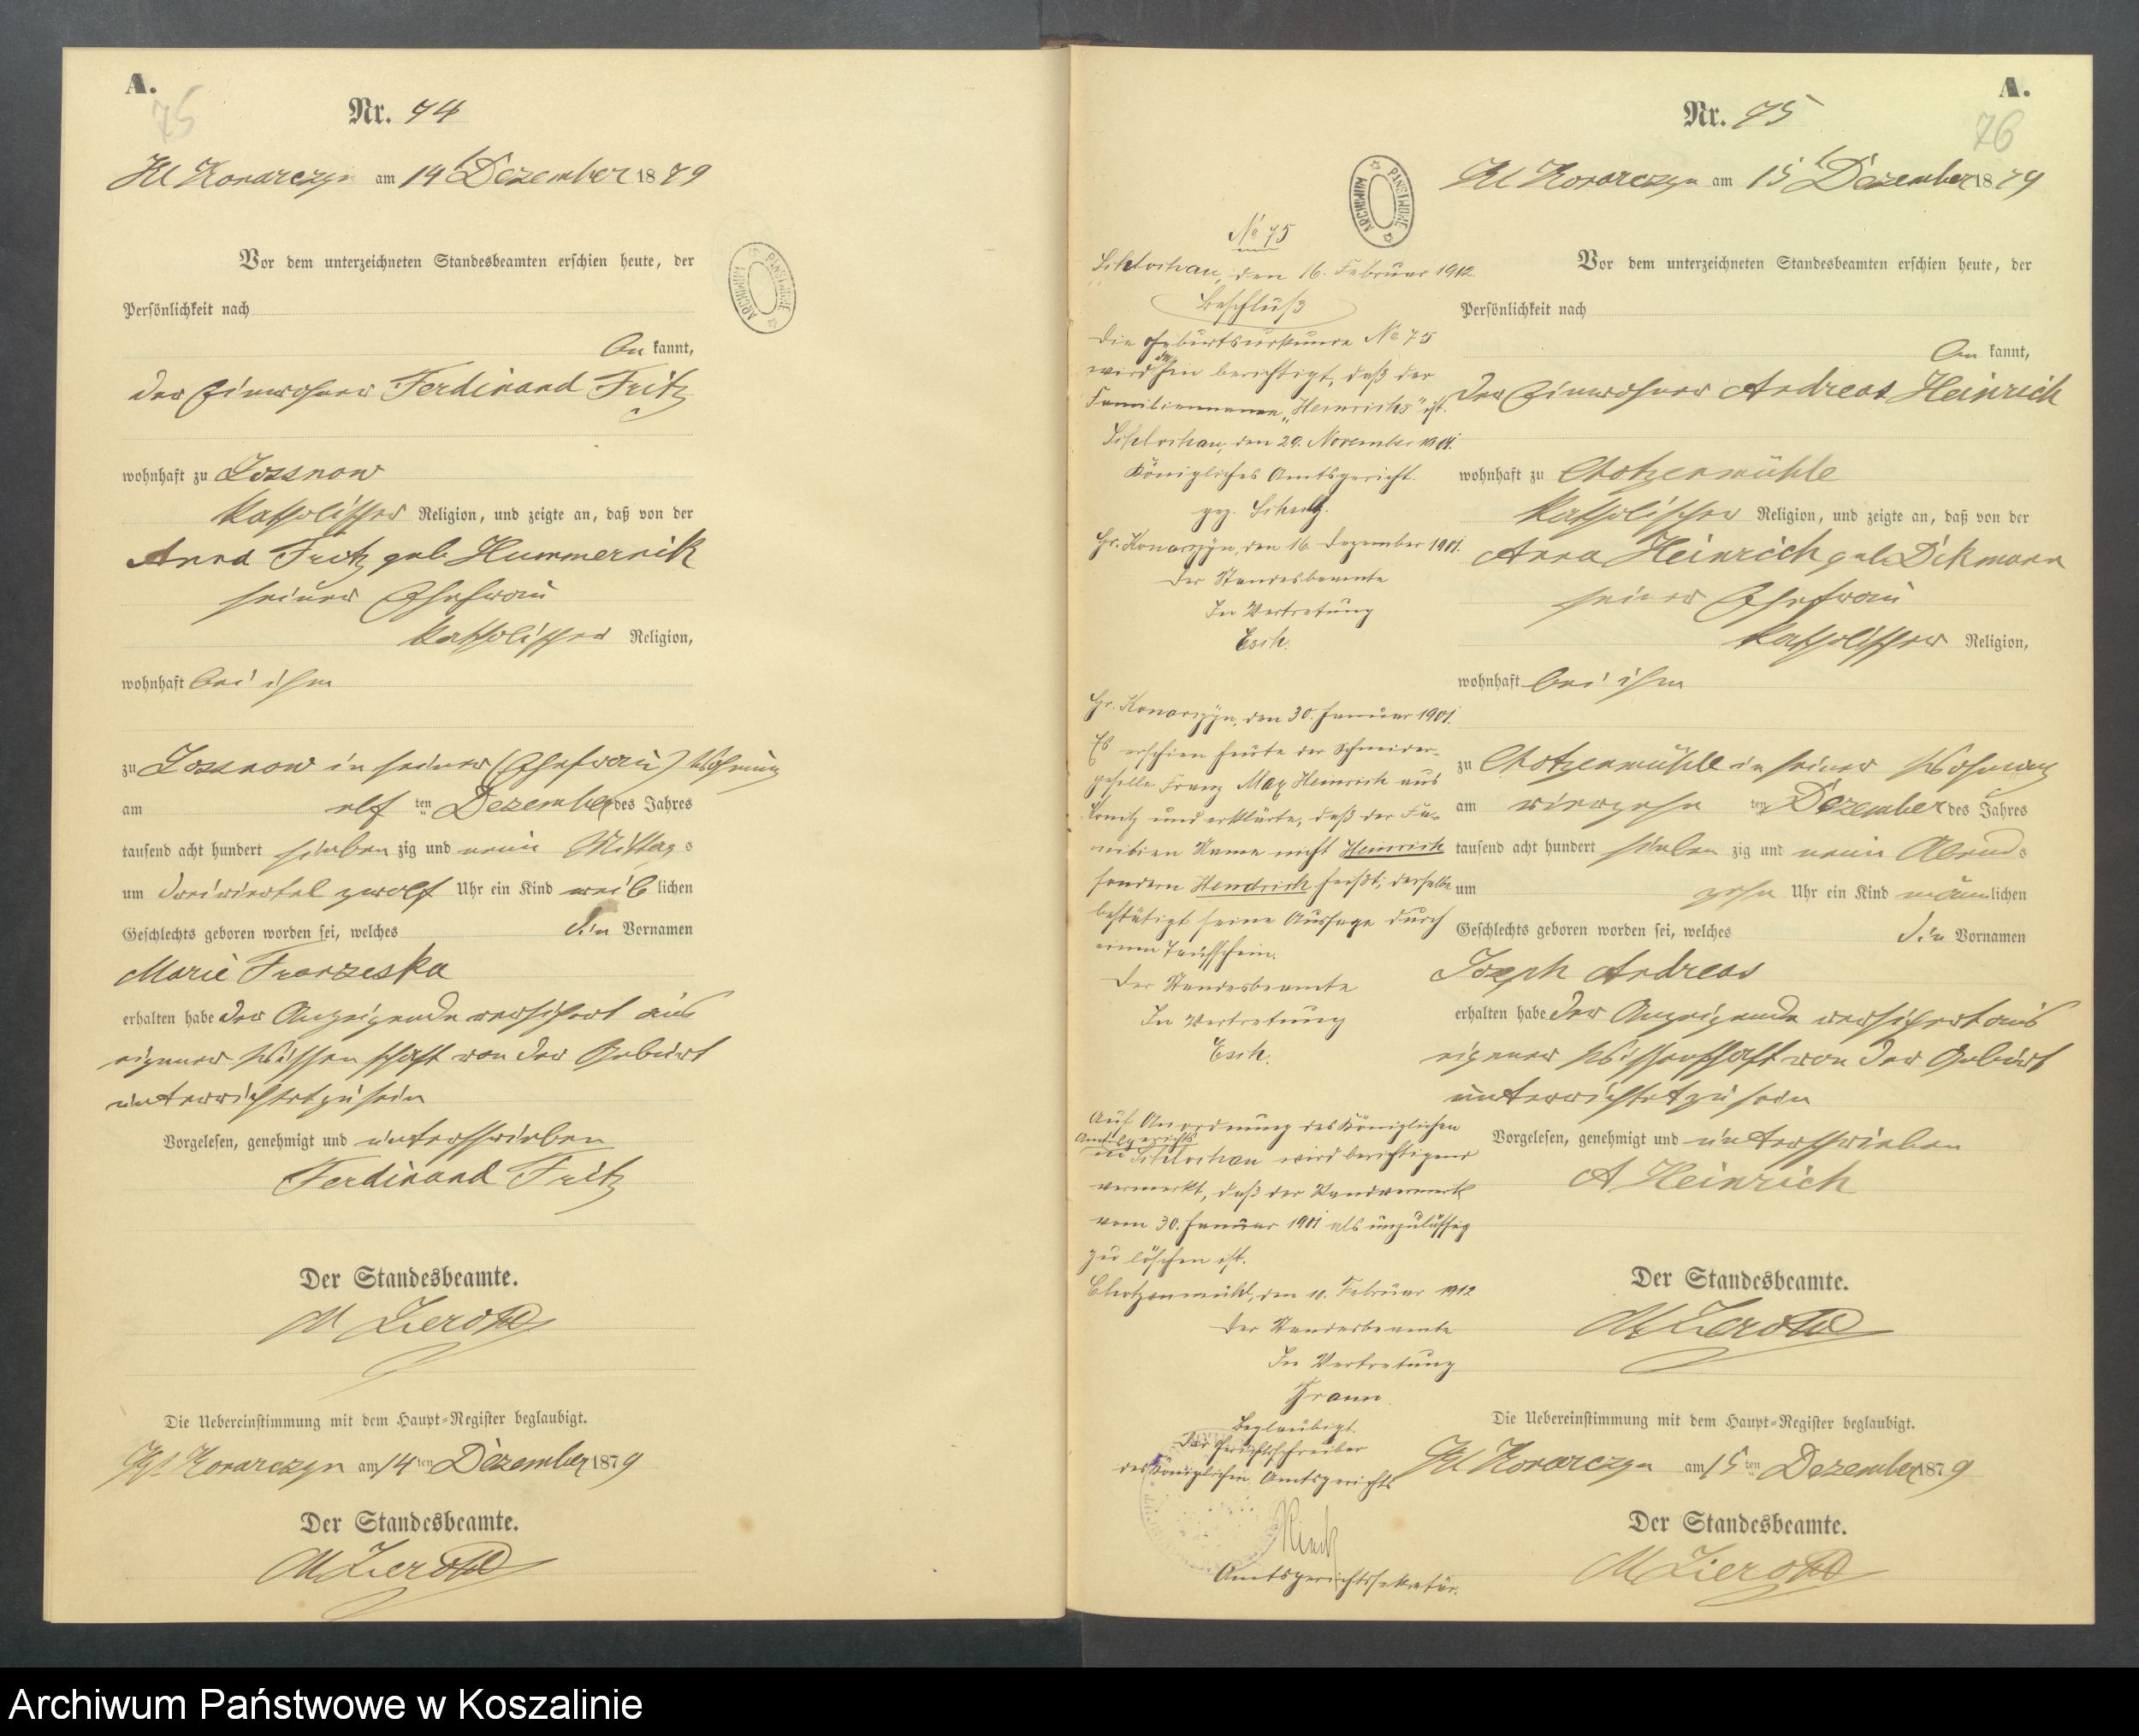 A.
75
Nr. 74
Kl Konarczyn am 14t Dezember 1879
Vor dem unterzeichneten Standesbeamten erschien heute, der
Persönlichkeit nach
be kannt,
der Einwohner Ferdinand Fritz
wohnhaft zu Lossnow
katholischer Religion, und zeigte an, daß von der
Anna Fritz geb Hummernik
seiner Ehefrau
katholischer Religion,
wohnhaft bei ihm
zu Lossnow in seiner (Ehefrau) Wohnung
am elf ten Dezember des Jahres
tausend acht hundert sieben zig und neun Mittag s
um dreiviertel zwölf Uhr ein Kind weib lichen
Geschlechts geboren worden sei, welches die Vornamen
Marie Franzeska
erhalten habe der Anzeigende versichert aus
eigener Wissenschaft von der Geburt
unterrichtet zu sein
Vorgelesen, genehmigt und unterschrieben
Ferdinand Fritz
Der Standesbeamte.
M Zieroth
Die Uebereinstimmung mit dem Haupt-Register beglaubigt.
Kl Konarczyn am 14 ten Dezember 1879
Der Standesbeamte.
M Zieroth
ARCHIWUM PAŃSTWOWE
A.
76
Nr. 75
Kl Konarczyn am 15t Dezember 1879
Vor dem unterzeichneten Standesbeamten erschien heute, der
Persönlichkeit nach
be kannt,
der Einwohner Andreas Heinrich
wohnhaft zu Chotzenmühle
katholischer Religion, und zeigte an, daß von der
Anna Heinrich geb Dikmann
seiner Ehefrau
katholischer Religion,
wohnhaft bei ihm
zu Chotzenmühle in seiner Wohnung
am vierzehn ten Dezember des Jahres
tausend acht hundert sieben zig und neun Abend s
um zehn Uhr ein Kind männlichen
Geschlechts geboren worden sei, welches die Vornamen
Joseph Andreas
erhalten habe der Anzeigende versichert aus
eigener Wissenschaft von der Geburt
unterrichtet zu sein
Vorgelesen, genehmigt und unterschrieben
A Heinrich
Der Standesbeamte.
M Zieroth
Die Uebereinstimmung mit dem Haupt-Register beglaubigt.
Kl Konarczyn am 15 ten Dezember 1879
Der Standesbeamte.
M Zieroth
ARCHIWUM PAŃSTWOWE
No 75
Schlochau, den 16. Februar 1912.
Beschluß
Die Geburtsurkunde No 75
wird dahin berichtigt, daß der
Familienname „Heinrichs" ist.
Schlochau, den 29. November 1901.
Königliches Amtsgericht.
gez. Schulz.
Gr. Konarzyn, den 16. Dezember 1901.
Der Standesbeamte
In Vertretung
Esch.
Gr. Konarzyn, den 30. Januar 1901.
Es erschien heute der Schneider-
geselle Franz Max Heinrich aus
Konitz und erklärte, daß der Fa-
milien Name nicht Heinrich
sondern Hendrich heißt; derselbe
bestätigt seine Aussage durch
einen Taufschein.
Der Standesbeamte
In Vertretung
Esch.
Auf Anordnung des Königlichen
Amtsgerichts
in Schlochau wird berichtigend
vermerkt, daß der Randvermerk
vom 30. Januar 1901 als unzulässig
zu löschen ist.
Chotzenmühl, den 10. Februar 1912
Der Standesbeamte
In Vertretung
Beglaubigt.
Der Gerichtsschreiber
des Königlichen Amtsgerichts
Amtsgerichtssekretär.
Archiwum Państwowe w Koszalinie